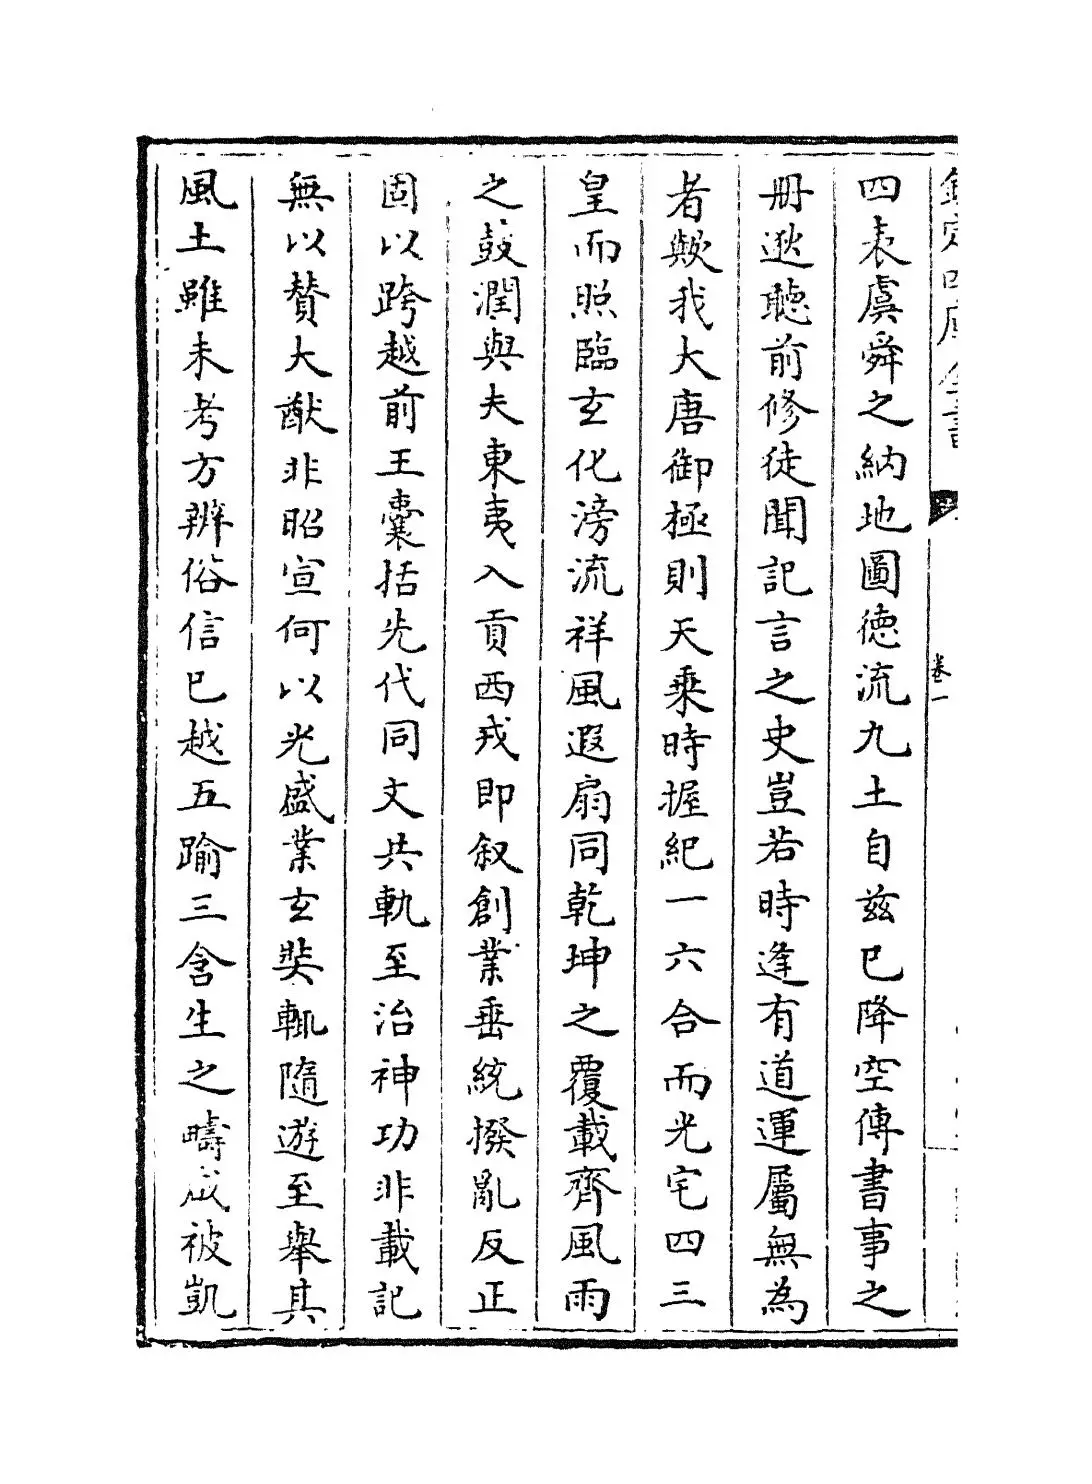 四表虞舜之納地圖徳流九土自兹已降空傳書事之
冊逖聽前修徒聞記言之史豈若時逢有道運屬無為
者歟我大唐御極則天乗時握紀一六合而光宅四三
皇而照臨玄化滂流祥風遐扇同乾坤之覆載齊風雨
之鼓潤與夫東夷入貢西戎即叙創業垂統撥亂反正
固以跨越前王囊括先代同文共軌至治神功非載記
無以賛大猷非昭宣何以光盛業玄奘輒隨遊至舉其
風土雖未考方辨俗信已越五踰三含生之疇咸被凱
卷一